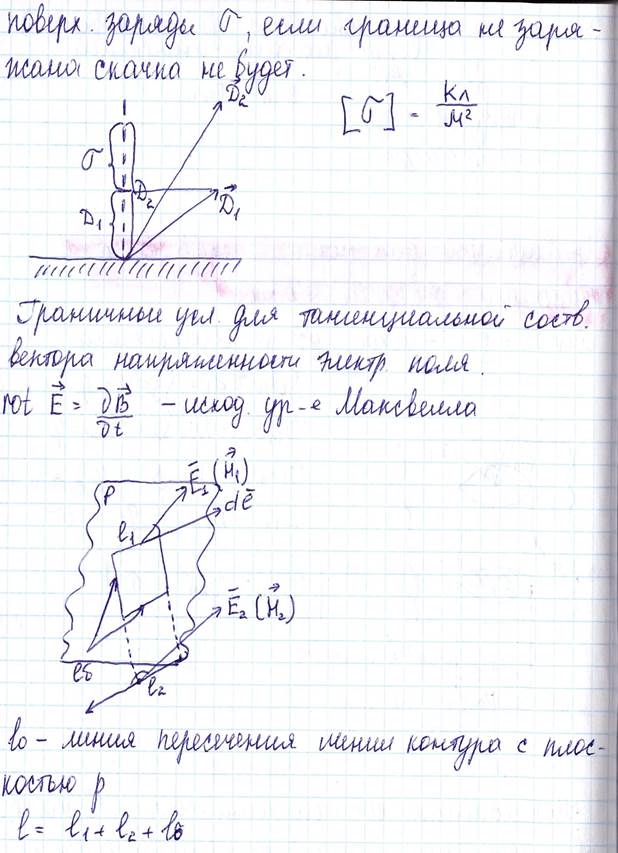 поверх. заряды σ, если граница не заря-
жана скачка не будет.
D₂
[σ] = Кл/м²
σ
D₂
D₁
D₁
Граничные усл. для тангенциальной соств.
вектора напряженности электр. поля.
rot E = ∂B/∂t – исход. ур-е Максвелла
E₁ (H₁)
P
dē
l₁
E₂ (H₂)
lб
l₂
l₀ – линия пересечения линии контура с плос-
костью p
l = l₁ + l₂ + lб